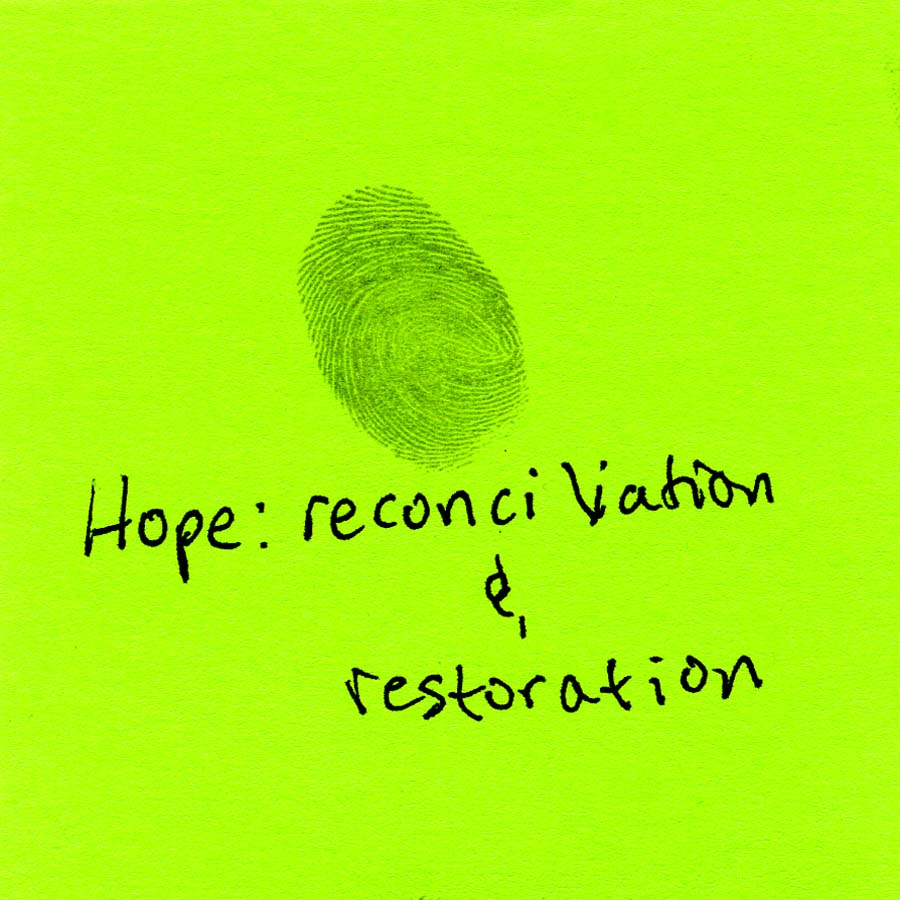 Hope: reconciliation
&
restoration